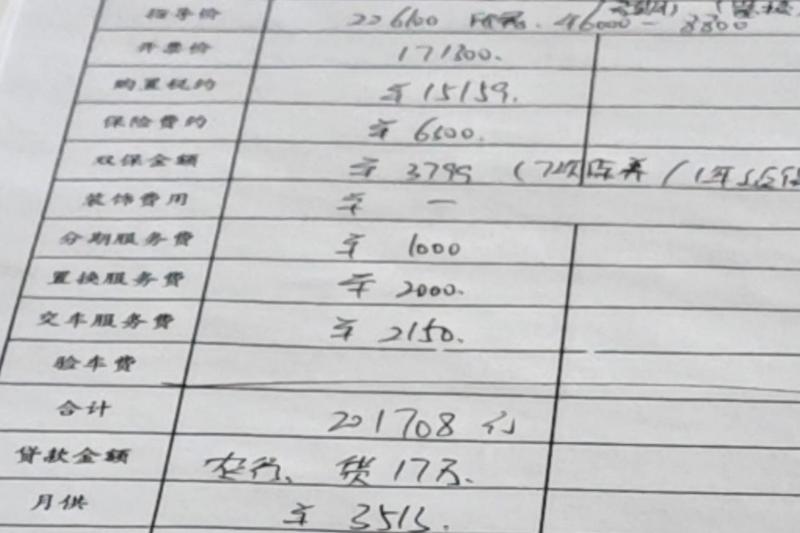 指导价 226100 46000- 3300
开票价 171300.
购置税约 ¥15159.
保险费约 ¥6300.
双保金额 ¥3799 (7次保养/1年
装饰费用 ¥ 一
分期服务费 ¥1000
置换服务费 ¥2000.
交车服务费 ¥2150.
验车费
合计 201708
贷款金额 农行、贷17万.
月供 ¥3513.